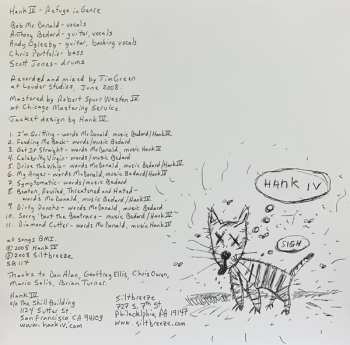 Hank IV - Refuge in Genre
Bob McDonald - vocals
Anthony Bedard - guitar, vocals
Andy Oglesby - guitar, backing vocals
Chris Portfolio - bass
Scott Jones - drums
Recorded and mixed by Tim Green
at Louder Studios, June 2008.
Mastered by Robert Spurr Weston IV
at Chicago Mastering Service.
Jacket design by Hank IV.
1. I'm Quitting - words McDonald, music Bedard/Hank IV
2. Feeding Me Back - words/music Bedard
3. Got It Straight - words McDonald, music Hank IV
4. Celebrity Virgin - words/music Bedard
5. Drive the Whip - words McDonald, music Bedard/Hank IV
6. My Anger - words McDonald, music Bedard/Hank IV
7. Symptomatic - words/music Bedard
8. Beaten, Fouled, Threatened and Hated -
words McDonald, music Bedard/Hank IV
9. Dirty Poncho - words McDonald, music Bedard
10. Sorry 'bout the - words McDonald, music Bedard/Hank IV
11. Diamond Cutter - words McDonald, music Hank IV
all songs BMI.
© 2008 Hank IV
℗ 2008 Siltbreeze
SB 117
Thanks to Dan Alan, Geoffrey Ellis, Chris Owen,
Mario Solis, Brian Turner.
Hank IV
c/o The Skill Building
1124 Sutter St
San Francisco CA 94109
www.hankiv.com
Siltbreeze
727 S. 7th St
Philadelphia PA 19147
www.siltbreeze.com
HANK IV
SIGH